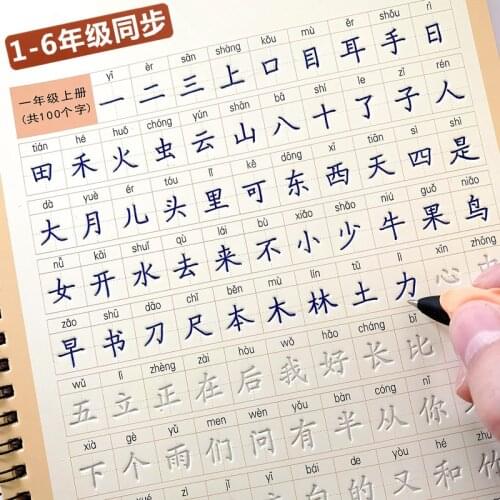 1-6年级同步
yī èr sān shàng kǒu mù ěr shǒu rì
一年级上册
(共100个字)
一 二 三 上 口 目 耳 手 日
tián hé huǒ chóng yún shān bā shí le zǐ rén
田 禾 火 虫 云 山 八 十 了 子 人
dà yuè ér tóu lǐ kě dōng xī tiān sì shì
大 月 儿 头 里 可 东 西 天 四 是
nǚ kāi shuǐ qù lái bù xiǎo shǎo niú guǒ niǎo
女 开 水 去 来 不 小 少 牛 果 鸟
zǎo shū dāo chǐ běn mù lín tǔ lì xīn zhōng
早 书 刀 尺 本 木 林 土 力 心
wǔ lì zhèng zài hòu wǒ hǎo cháng bǐ
五 立 正 在 后 我 好 长 比
xià gè yǔ men wèn yǒu bàn cóng nǐ
下 个 雨 们 问 有 半 从 你
bái de yòu hé
白 的 又 和